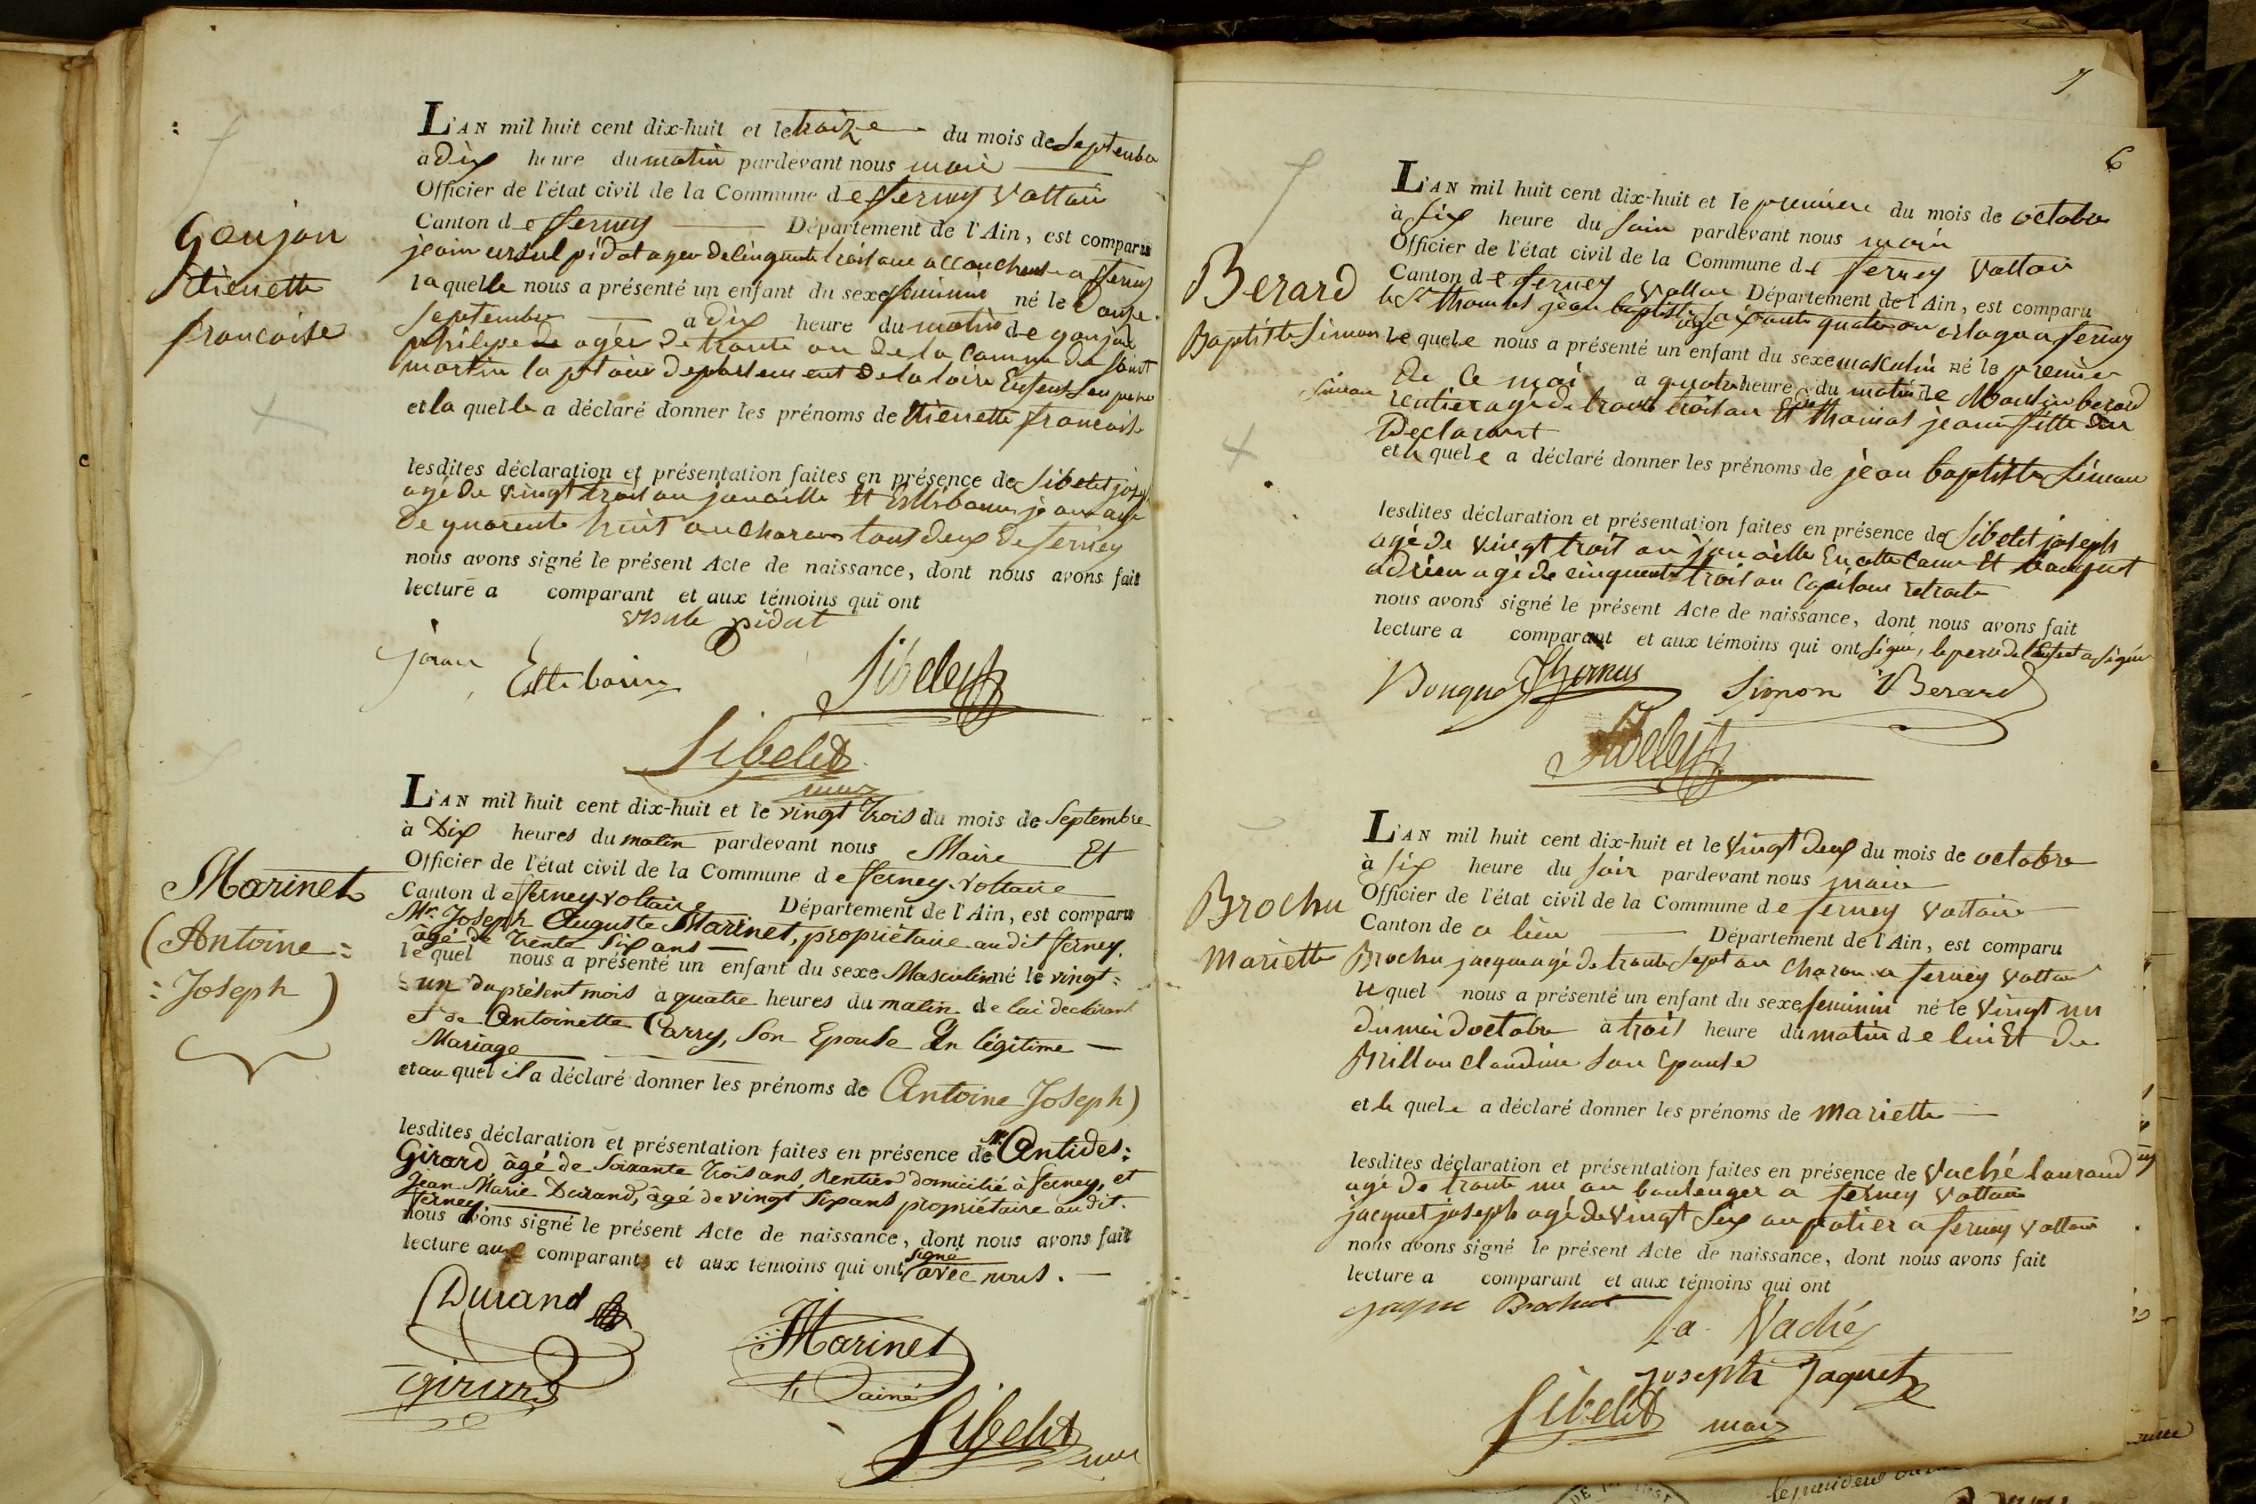 L'AN mil huit cent dix-huit et le traize du mois de Septembre
a dix heure du matin pardevant nous maire
Officier de l'état civil de la Commune de ferney Voltair
Canton de ferney Département de l'Ain, est comparu
jean ursul pidot agee de cinquente trois ans accoucheuse a ferney
la quelle nous a présenté un enfant du sexe feminin né le Douze
Septembre a dix heure du matin de goujon
philipe de agée de trante an de la comune de saint
martin la plaine departement de la loire Enfent Son pere
et la quelle a déclaré donner les prénoms de Etienette francoise
Goujon
Etienette
francoise
lesdites déclaration et présentation faites en présence de Sibelet josef
agé de vingt trois an jouaille Et Estibaune jean agé
De quarente huit an Charon tous deux de ferney
nous avons signé le présent Acte de naissance, dont nous avons fait
lecture a comparant et aux témoins qui ont
ursule pidat
jean Estibaune Sibelet
Sibelet
maire
L'AN mil huit cent dix-huit et le vingt trois du mois de Septembre
à Dix heures du matin pardevant nous Maire Et
Officier de l'état civil de la Commune de ferney-Voltaire
Canton de ferney-voltaire Département de l'Ain, est comparu
Mr. Joseph Auguste Marinet, propriétaire audit ferney.
âgé de Trente Six ans
le quel nous a présenté un enfant du sexe Masculin né le vingt=
=un du présent mois à quatre heures du matin de lui declarant
et de Antoinette Carry, Son Epouse En légitime
Mariage
et au quel il a déclaré donner les prénoms de Antoine Joseph)
Marinet
(Antoine=
=Joseph)
lesdites déclaration et présentation faites en présence de Mr. Antides=
Girard, âgé de Soixante Trois ans, Rentier domicilié à ferney, et
Jean Marie Durand, âgé de vingt Six ans propriétaire audit.
ferney.
nous avons signé le présent Acte de naissance, dont nous avons fait
lecture aux comparants et aux témoins qui ont signé avec nous.
Durand
Marinet
L'ainé
Girard
Sibelet
maire
7
6
L'AN mil huit cent dix-huit et le première du mois de octobre
à six heure du soir pardevant nous maire
Officier de l'état civil de la Commune de ferney Voltair
Canton de ferney Voltair Département de l'Ain, est comparu
le Sr thomas jean baptiste agé soixante quatre an orlogé a ferney
le quele nous a présenté un enfant du sexe masculin né le premier
De Ce moi a quatre heure du matin de Martin berard
simon rentier agé de trante trois an Et thomas jeane fille du
Declarant
et le quele a déclaré donner les prénoms de jean baptiste Simeau
Berard
Baptiste Simon
lesdites déclaration et présentation faites en présence de Sibelet joseph
agé de vingt trois an jouaille En cette Comune Et bouquet
adrien agé de cinquente trois an Capitaine retraite
nous avons signé le présent Acte de naissance, dont nous avons fait
lecture a comparant et aux témoins qui ont signé, le pere de l'Enfent a signé
Bouquet Thomas Simon Berard
Sibelet
L'AN mil huit cent dix-huit et le Vingt deux du mois de octobre
à six heure du soir pardevant nous maire
Officier de l'état civil de la Commune de ferney Voltair
Canton de ce lieu Département de l'Ain, est comparu
Brochu jacque agé de trante sept an Charon a ferney Voltair
le quel nous a présenté un enfant du sexe feminin né le Vingt un
du moi d'octobre à trois heure du matin de lui Et de
Brillon Claudine Son Epouse
et le quele a déclaré donner les prénoms de Mariette
Brochu
Mariette
lesdites déclaration et présentation faites en présence de Vaché laurand
agé de trante un an boulenger a ferney Voltair
jacquet joseph agé de vingt six an potier a ferney voltair
nous avons signé le présent Acte de naissance, dont nous avons fait
lecture a comparant et aux témoins qui ont
jaque Brochu
La Vaché
joseph Jaquet
Sibelet maire